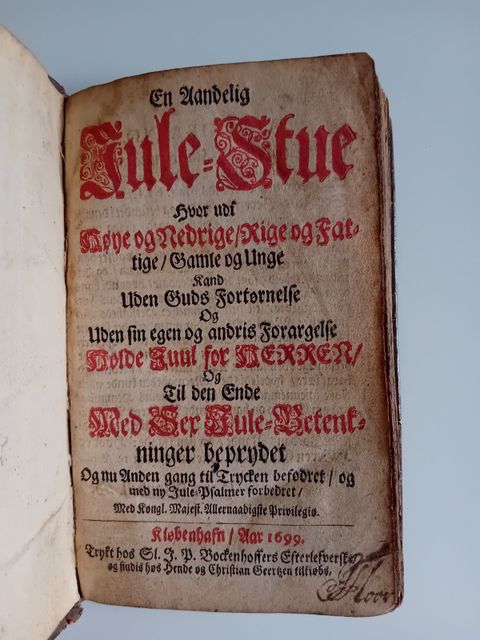 En Aandelig
Jule-Stue
Hvor udi
Høye og Nedrige/Rige og Fat-
tige/Gamle og Unge
Kand
Uden Guds Fortørnelse
Og
Uden sin egen og andris Forargelse
Holde Juul for HERREN/
Og
Til den Ende
Med Sex Jule-Betenk-
ninger beprydet
Og nu Anden gang til Trycken befodret/og
med ny Jule-Psalmer forbedret/
Med Kongl. Majest. Allernaadigste Privilegio.
Kiøbenhafn/Aar 1699.
Trykt hos Sl. J. P. Bockenhoffers Efterlefverske
og findis hos Hende og Christian Geertzen tilkiøbs.